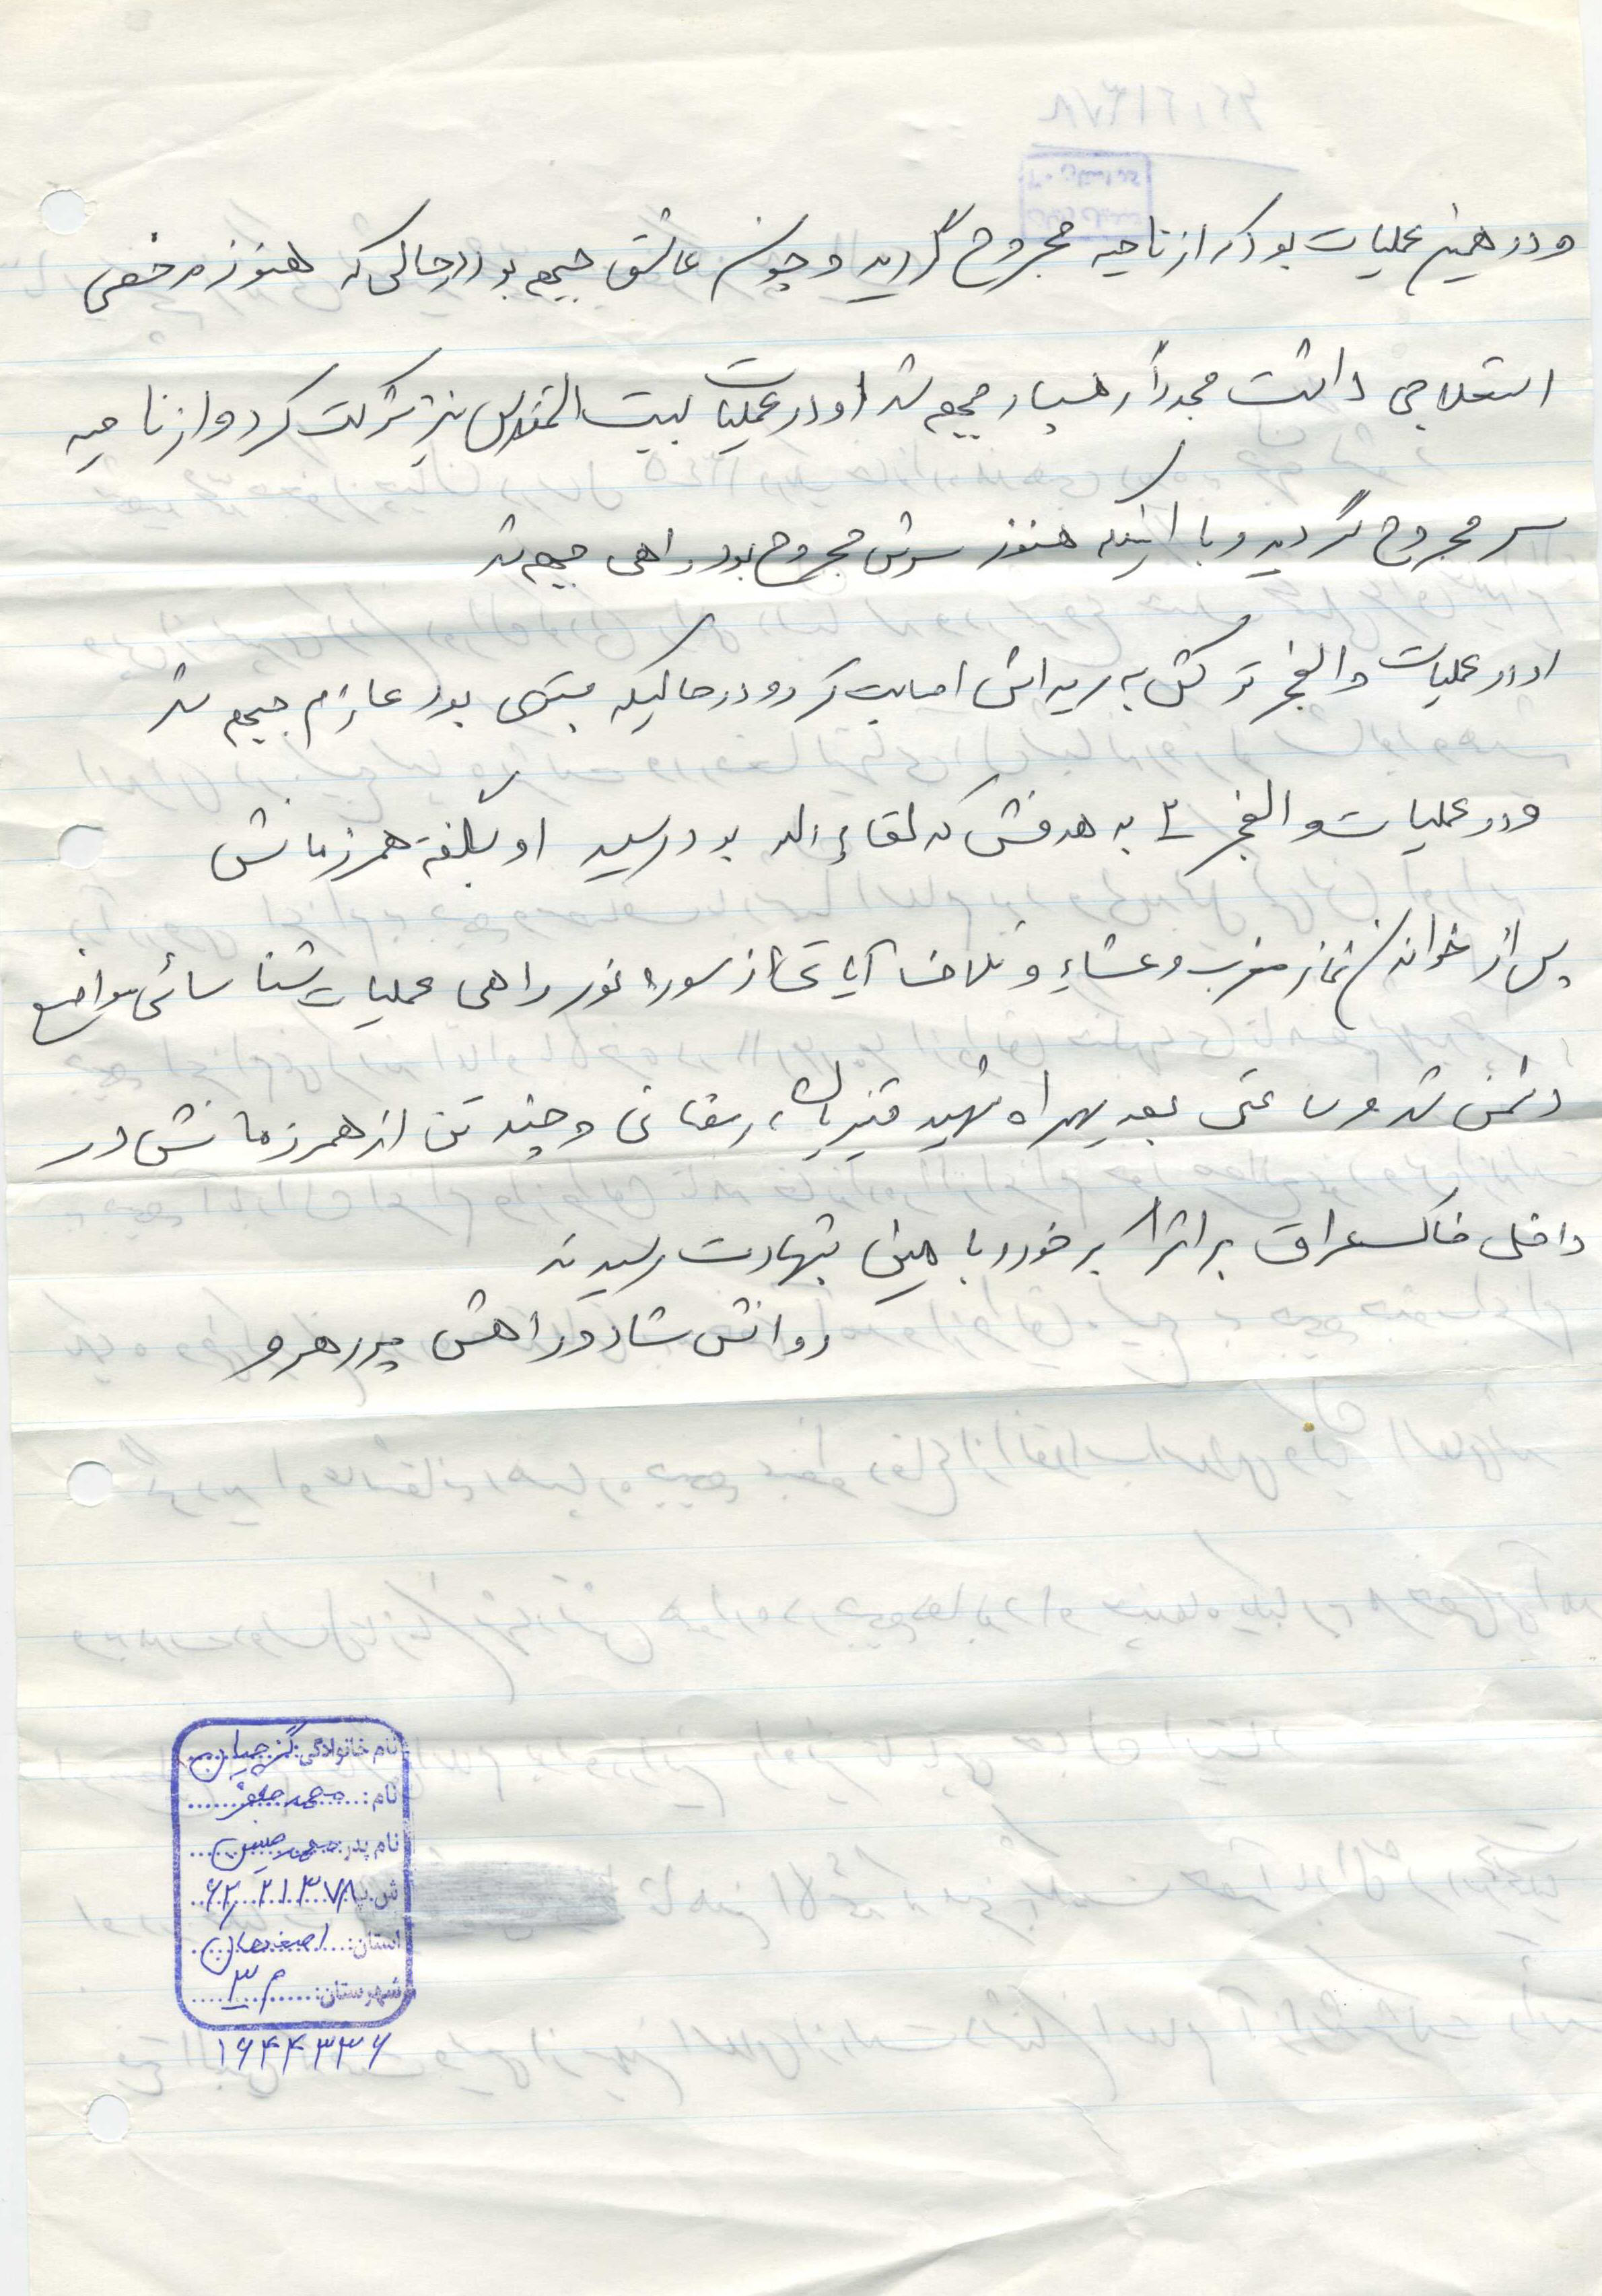 و در همین عملیات بود که از ناحیه مجروح گردید و چون عاشق جبهه بود در حالی که هنوز مرخصی
استعلاجی داشت مجدداً رهسپار جبهه شد او در عملیات بیت المقدس نیز شرکت کرد و از ناحیه
سر مجروح گردید و با اینکه هنوز سرش مجروح بود راهی جبهه شد
او در عملیات والفجر ترکش به ریه اش اصابت کرد و در حالیکه بستری بود عازم جبهه شد
و در عملیات والفجر ۲ به هدفش که لقاء الله بود رسید او بگفته همرزمانش
پس از خواندن نماز مغرب و عشاء و تلاوت آیاتی از سوره نور راهی عملیات شناسائی مواضع
دشمن شد و ساعتی بعد بهمراه شهید رمضانی و چند تن از همرزمانش در
داخل خاک عراق بر اثر برخورد با مین بشهادت رسیدند
روانش شاد و راهش پررهرو
نام خانوادگی: گزچیان
نام: محمد جعفر
نام پدر: محمد حسین
ش.پ: ۶۲۰۲۱۳۷۸
استان: اصفهان
شهرستان: م ۳
۱۶۴۴۳۳۶